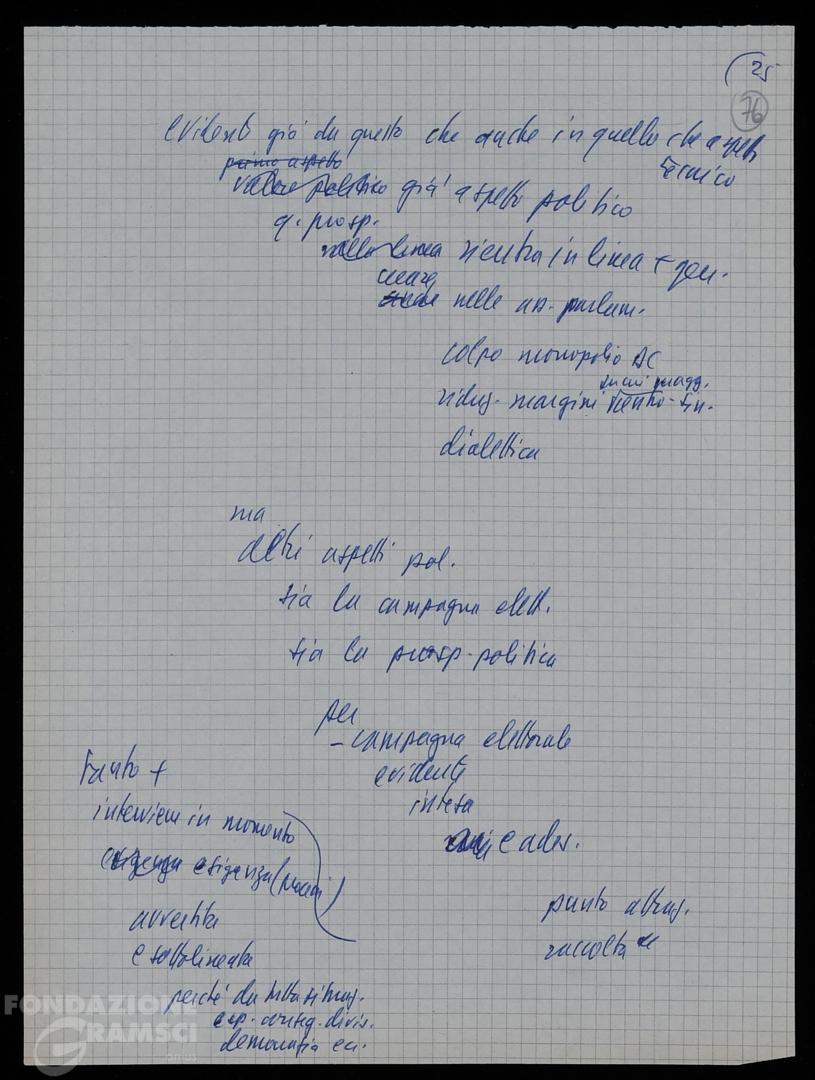 25
76
evidente già da questo che anche in quello che aspetti
tecnico
primo aspetto
valore politico già aspetto politico
q. prosp.
nella linea rientra in linea + gen.
nelle un. parlam.
colpo monopolio DC
riduz. margini centro-sin.
dialettica
ma
altri aspetti pol.
sia la campagna elett.
sia la prosp. politica
per
- campagna elettorale
evidente
intesa
e ades.
punto attraz.
raccolta
tanto +
interviene in momento
esigenza
avvertita
e sottolineata
perché da tutta situaz.
esp. conseg. divis.
democrazia ecc.
FONDAZIONE
GRAMSCI
onlus